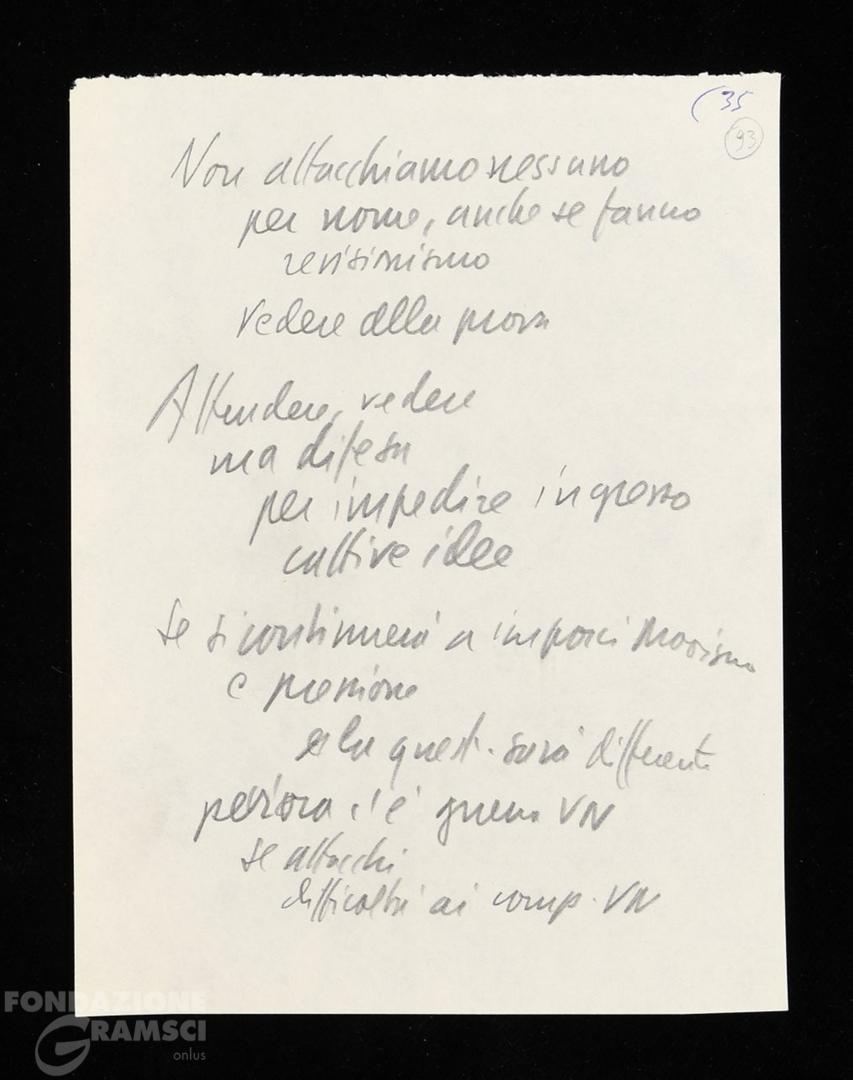 (35
93
Non attacchiamo nessuno
per nome, anche se fanno
revisionismo
vedere alla prova
Attendere, vedere
ma difesa
per impedire ingresso
cattive idee
Se si continuerà a imporci Maoismo
e pressione
la quest. sarà differente
per ora c'è guerra VN
se attacchi
difficoltà ai comp. VN
FONDAZIONE
GRAMSCI
onlus